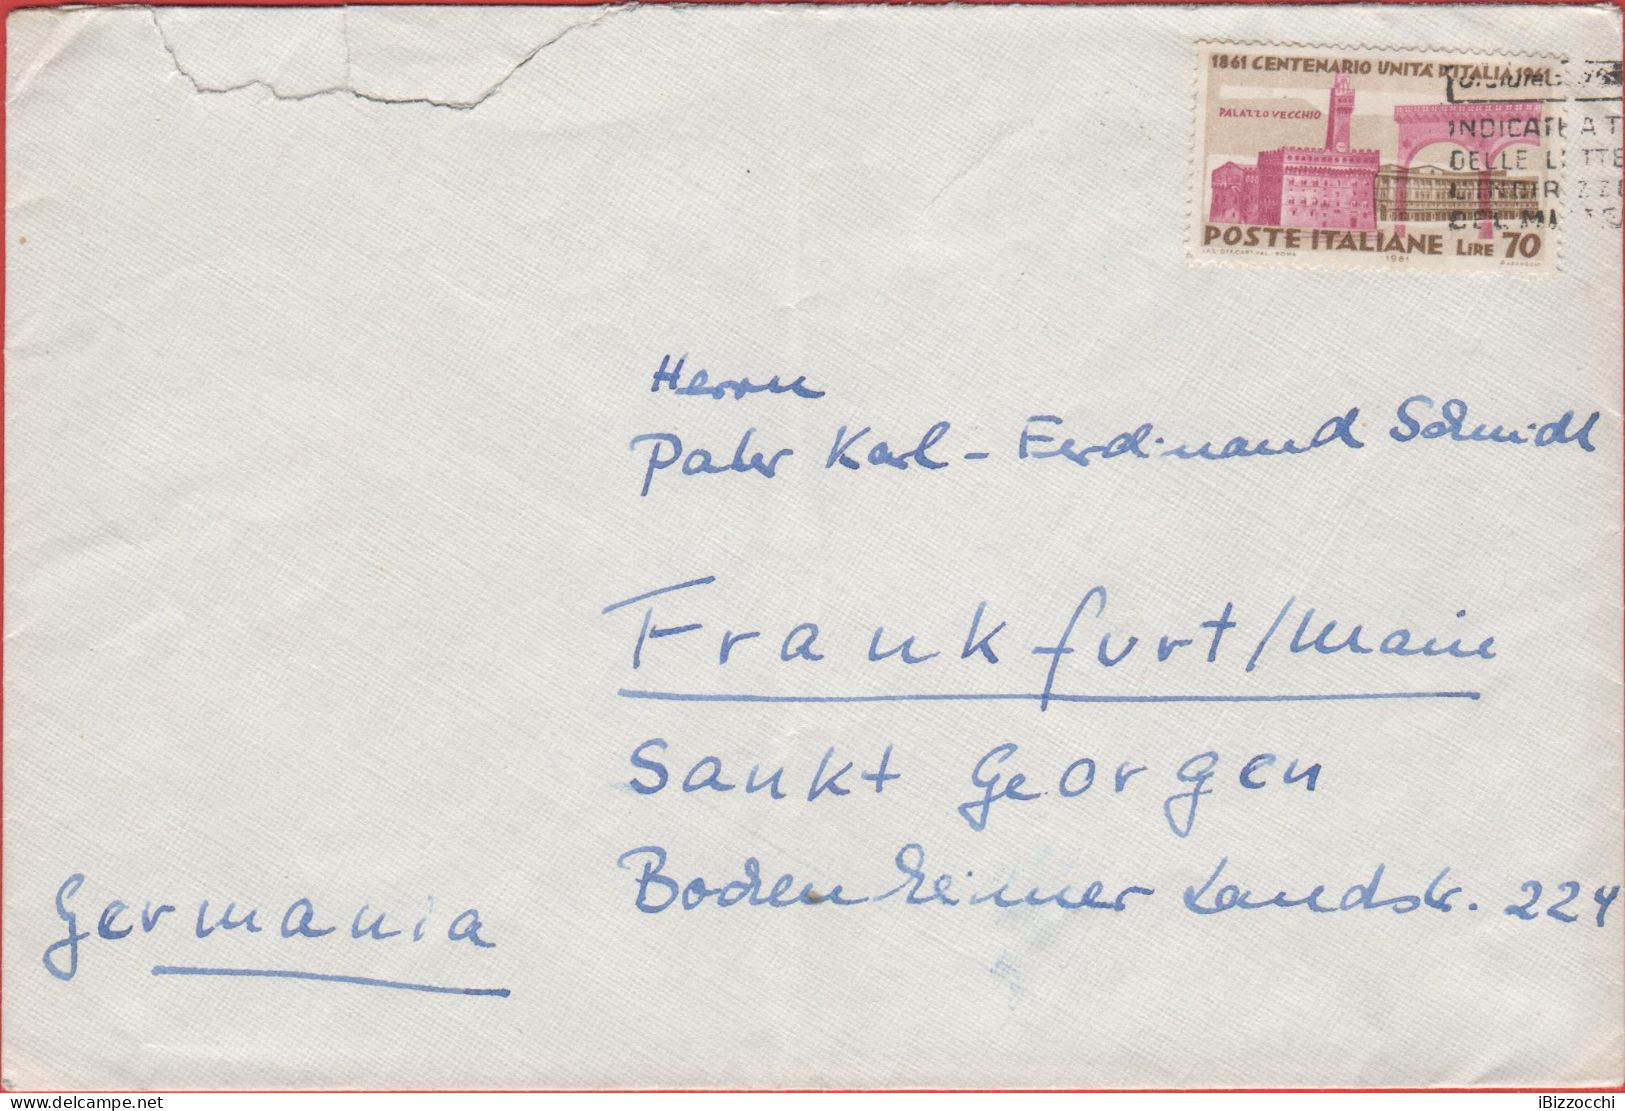 1861 CENTENARIO UNITÀ D'ITALIA 1961
PALAZZO VECCHIO
POSTE ITALIANE LIRE 70
1961
INDICATE A T
DELLE LETTE
DEL M
Herrn
Pater Karl-Ferdinand Schmidt
Frankfurt/Main
Sankt Georgen
Bodenheimer Landstr. 224
Germania
iBizzocchi
delcampe.net